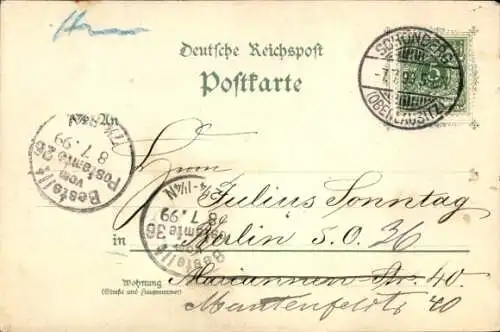 Deutsche Reichspost
Postkarte
SCHÖNBERG
7.7.99
(OBERLAUSITZ)
An
Bestellt
vom
Postamte 26
8.7.99
Herrn
Julius Sonntag
in Berlin S.O. 36
Bestellt
vom
Postamte 36
8.7.99
11-1¼N
Wohnung Mariannen-Str. 40.
(Straße und Hausnummer)
Manteufelstr 40